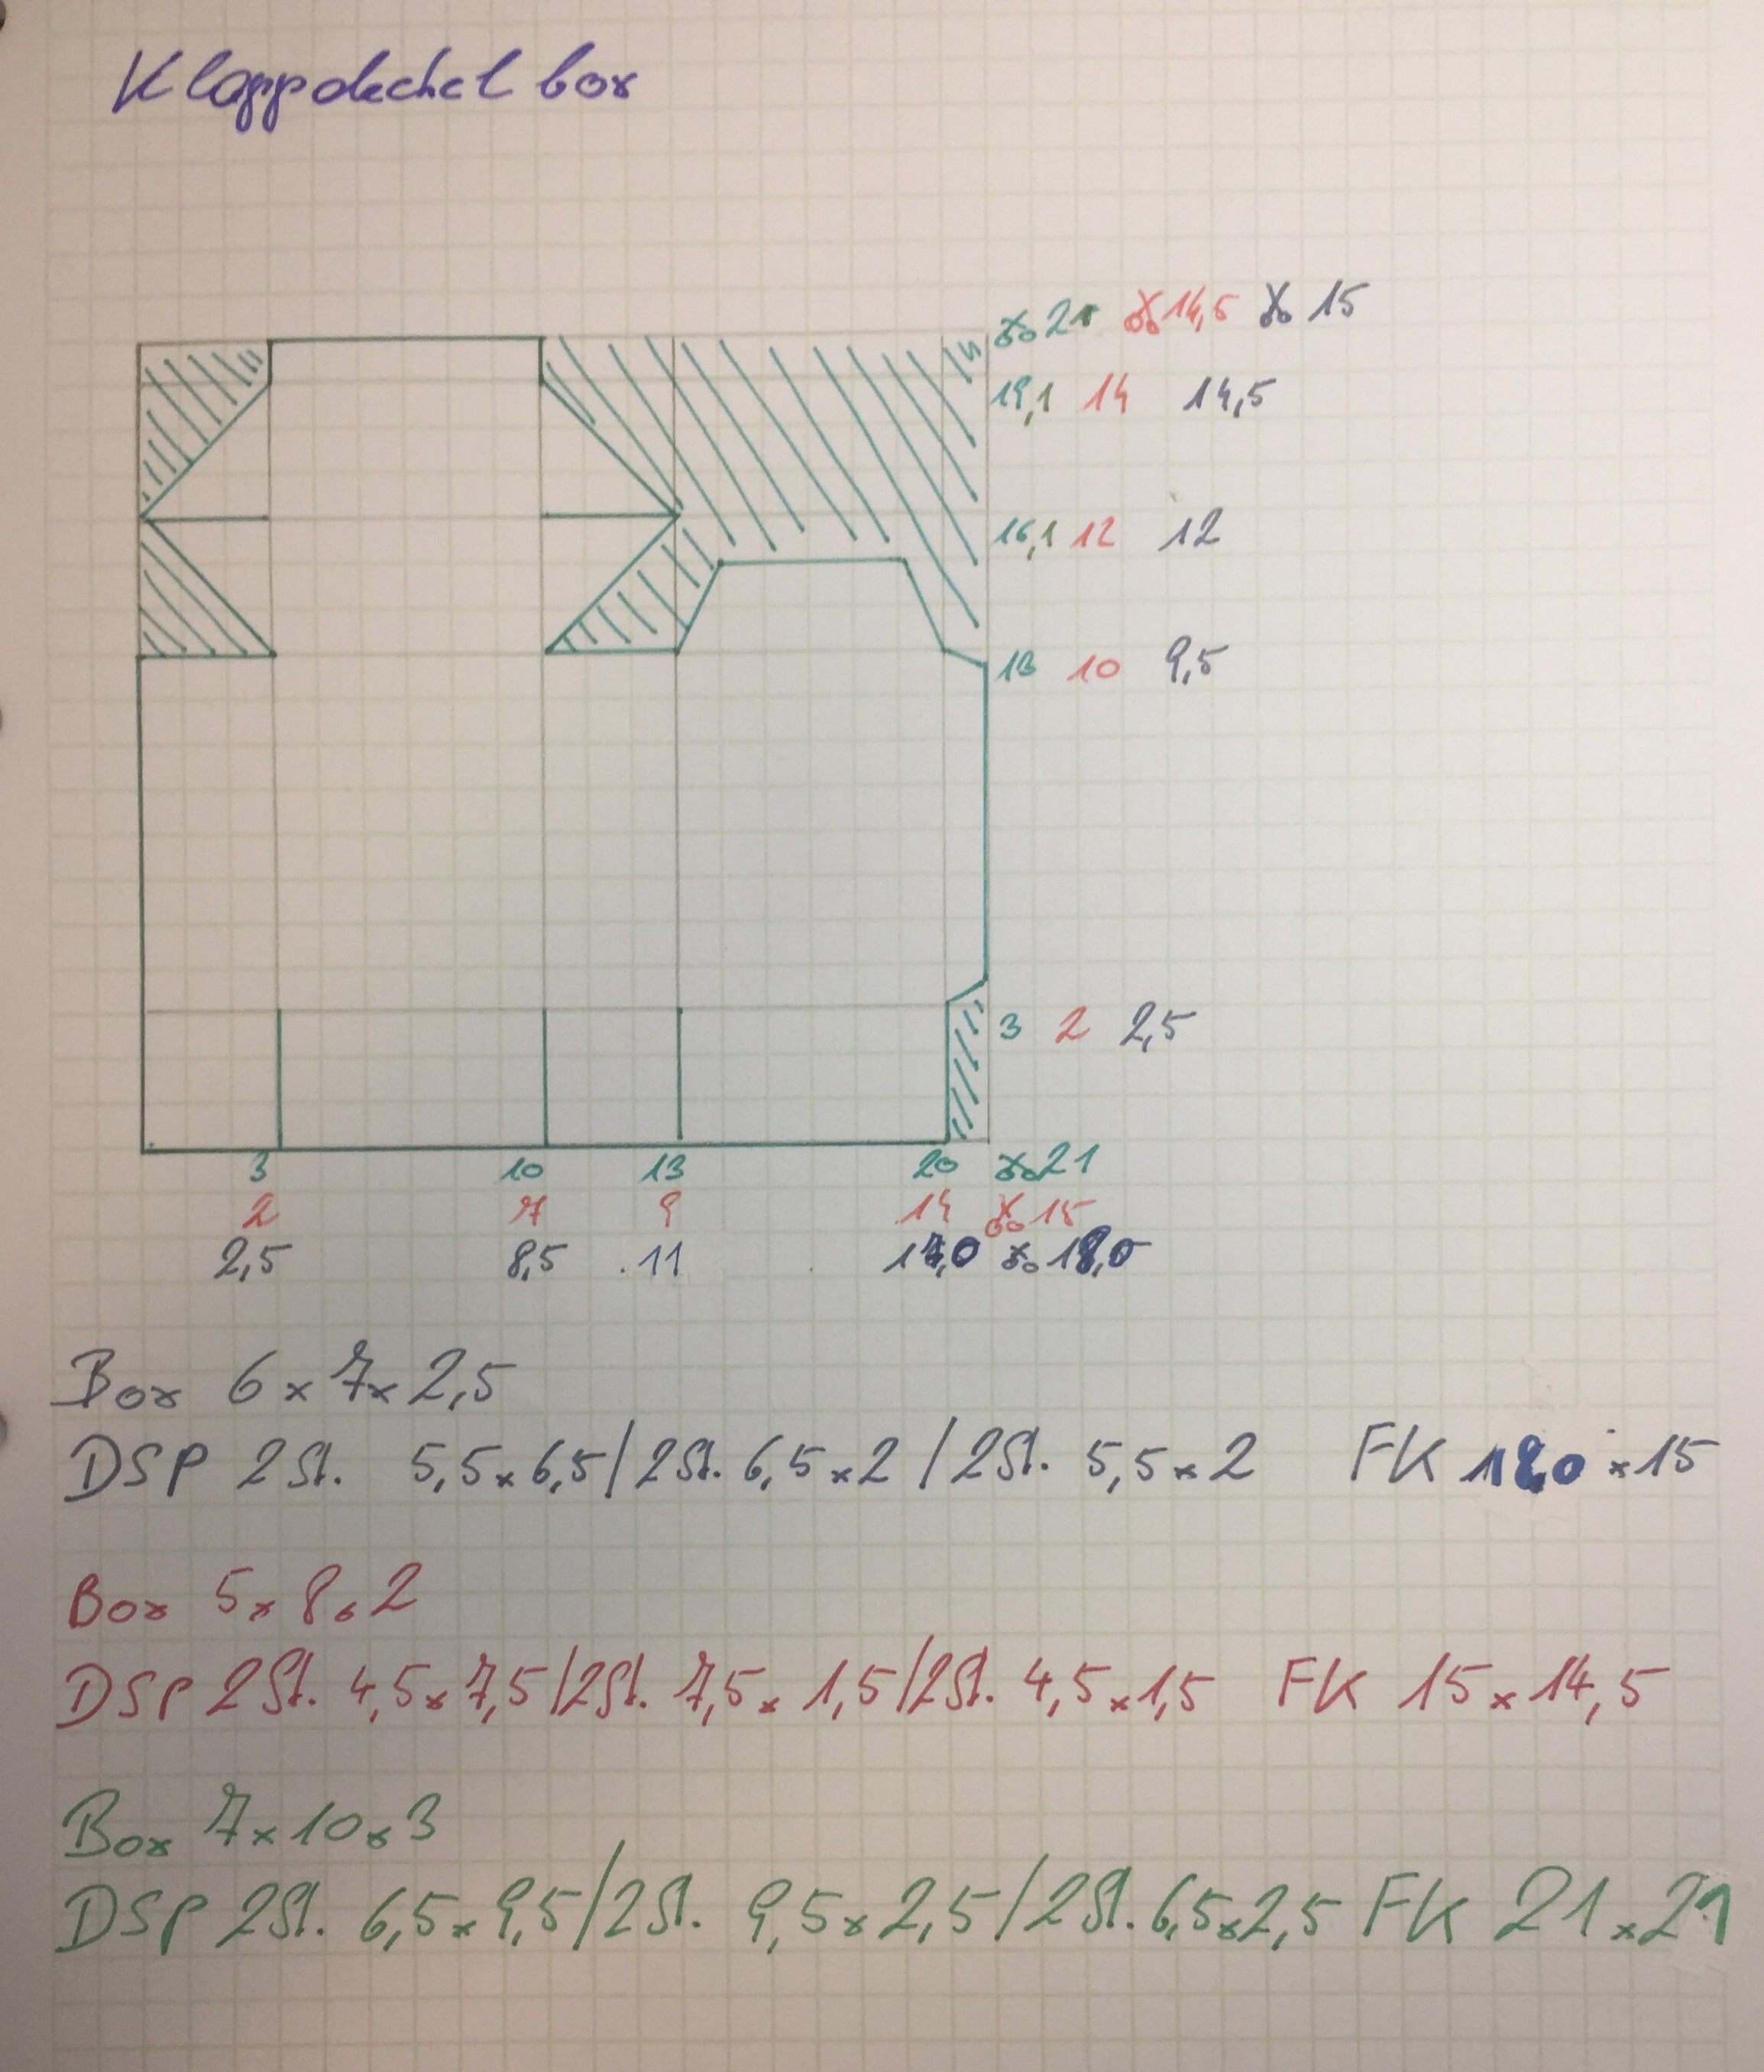 Klappdeckelbox
✂21 ✂14,5 ✂ 15
19,1 14 14,5
16,1 12 12
13 10 9,5
3 2 2,5
3 10 13 20 ✂21
2 7 9 14 ✂15
2,5 8,5 11 17,0 ✂18,0
Box 6 x 7 x 2,5
DSP 2 St. 5,5 x 6,5 / 2 St. 6,5 x 2 / 2 St. 5,5 x 2 FK 18,0 x 15
Box 5 x 8 x 2
DSP 2 St. 4,5 x 7,5 / 2 St. 7,5 x 1,5 / 2 St. 4,5 x 1,5 FK 15 x 14,5
Box 7 x 10 x 3
DSP 2 St. 6,5 x 9,5 / 2 St. 9,5 x 2,5 / 2 St. 6,5 x 2,5 FK 21 x 21